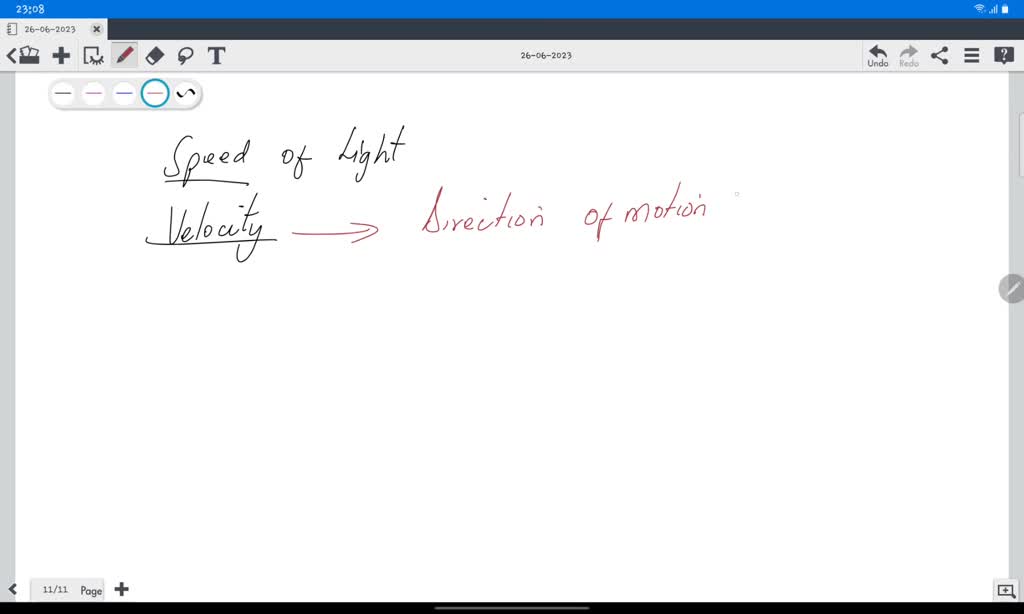 23:08
26-06-2023
T
26-06-2023
Undo
Redo
Speed of Light
Velocity → Direction of motion
11/11 Page